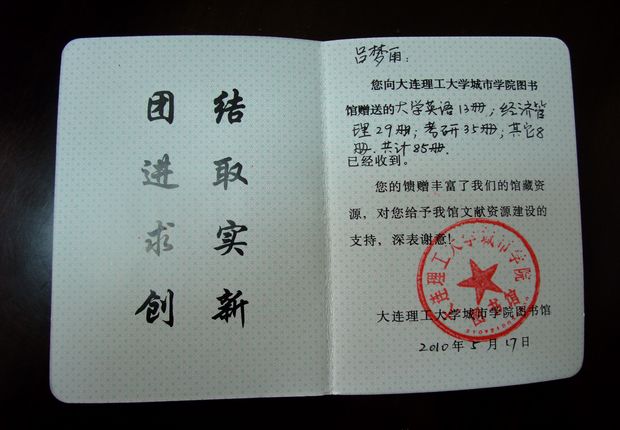 团结
进取
求实
创新
吕梦雨：
您向大连理工大学城市学院图书
馆赠送的大学英语13册；经济管
理29册；考研35册；其它8
册.共计85册.
已经收到。
您的馈赠丰富了我们的馆藏资
源，对您给予我馆文献资源建设的
支持，深表谢意！
大连理工大学城市学院
图书馆
大连理工大学城市学院图书馆
2010年5月17日